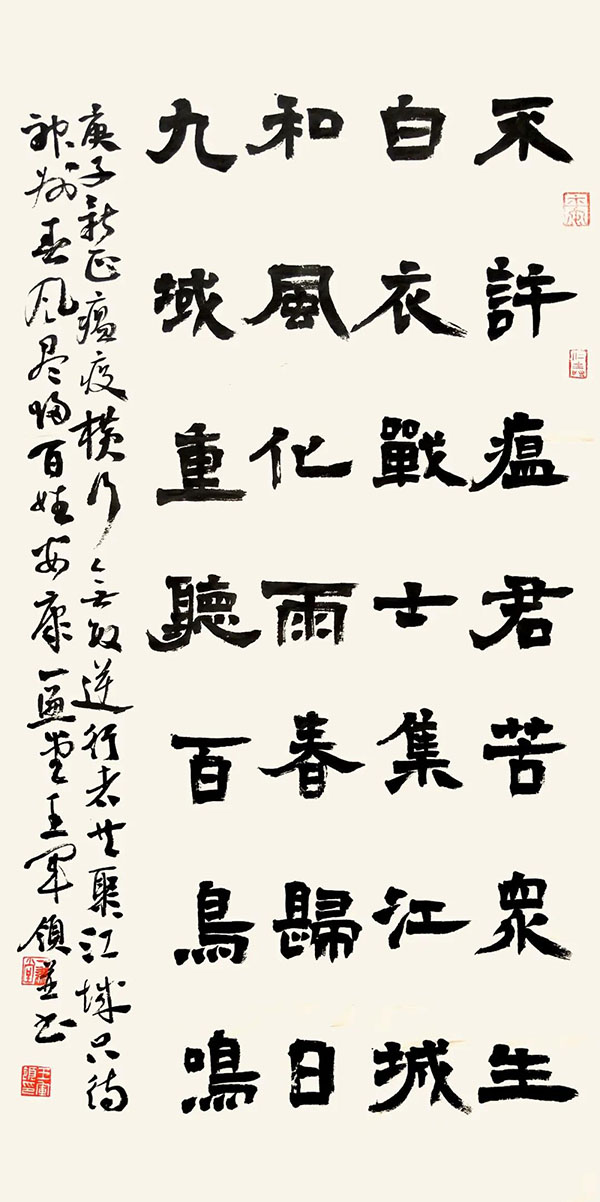 不許瘟君苦衆生
白衣戰士集江城
和風化雨春歸日
九域重聽百鳥鳴
庚子新正瘟疫横行無数逆行者共聚江城只待
神州春风尽归百姓安康一逼堂王军领並书